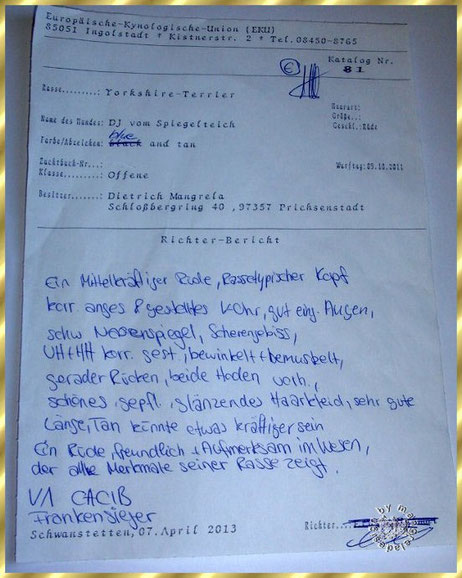 Europäische-Kynologische-Union (EKU)
85051 Ingolstadt * Kistnerstr. 2 * Tel.08450-8765
Katalog Nr.
€ 81
Rasse.........: Yorkshire-Terrier
Haarart:
Größe..:
Name des Hundes: DJ vom Spiegelteich
Geschl.:Rüde
blue
Farbe/Abzeichen: black and tan
Zuchtbuch-Nr...:
Wurftag:05.10.2011
Klasse.........: Offene
Besitzer.......: Dietrich Mangrela
Schloßbergring 40 ,97357 Prichsenstadt
Richter-Bericht
Ein Mittelkräftiger Rüde, Rassetypischer Kopf
korr. anges & gestaltetes KOhr, gut eing. Augen,
schw Nasenspiegel, Scherengebiss,
VH+HH korr. gest, bewinkelt + bemuskelt,
gerader Rücken, beide Hoden vorh.,
schönes gepfl. glänzendes Haarkleid, sehr gute
Länge, Tan könnte etwas kräftiger sein
Ein Rüde, freundlich + Aufmerksam im Wesen,
der alle Merkmale seiner Rasse zeigt.
V1 CACIB
Frankensieger
Schwanstetten, 07.April 2013
Richter
by